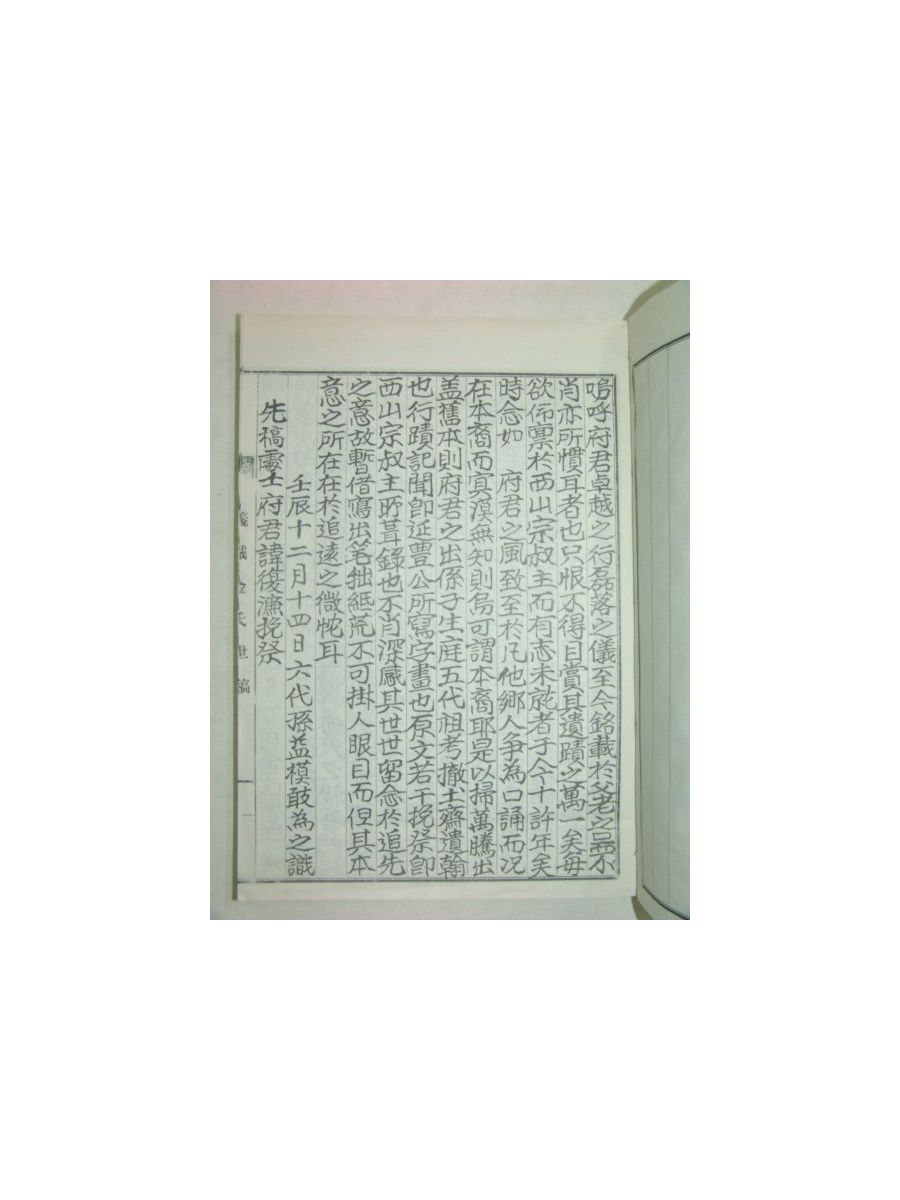 嗚呼府君卓越之行磊落之儀至今銘載於父老之口不
肖亦所慣耳者也只恨不得目賞其遺蹟之萬一矣毋
欲佈稟於西山宗叔主而有志未能者于今十許年矣
時念如 府君之風致至於凡他鄉人爭為口誦而况
在本裔而冥漠無知則烏可謂本裔耶是以掃萬騰出
盖舊本則府君之出係子生庭五代祖考撤土齋遺翰
也行蹟記聞卽延豊公所寫字畫也原文若干挽祭卽
西山宗叔主所葺錄也不肖深感其世世留念於追先
之意故暫借寫出笔拙紙荒不可掛人眼目而但其本
意之所在在於追遠之微忱耳
壬辰十二月十四日六代孫益模敢為之識
先稿處士府君諱復濂挽祭
義城金氏世稿